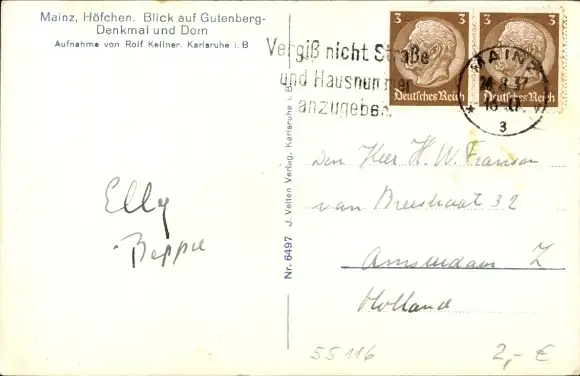 Mainz, Höfchen. Blick auf Gutenberg-
Denkmal und Dom
Aufnahme von Rolf Kellner. Karlsruhe i. B
3 3
Deutsches Reich Deutsches Reich
Vergiß nicht Straße
und Hausnummer
anzugeben.
MAINZ
3
Nr. 6497 J. Velten Verlag, Karlsruhe i. B.
Elly
Beppie
Den Heer H. W. Franson
van Breestraat 32
Amsterdam Z
Holland
55116
2,- €